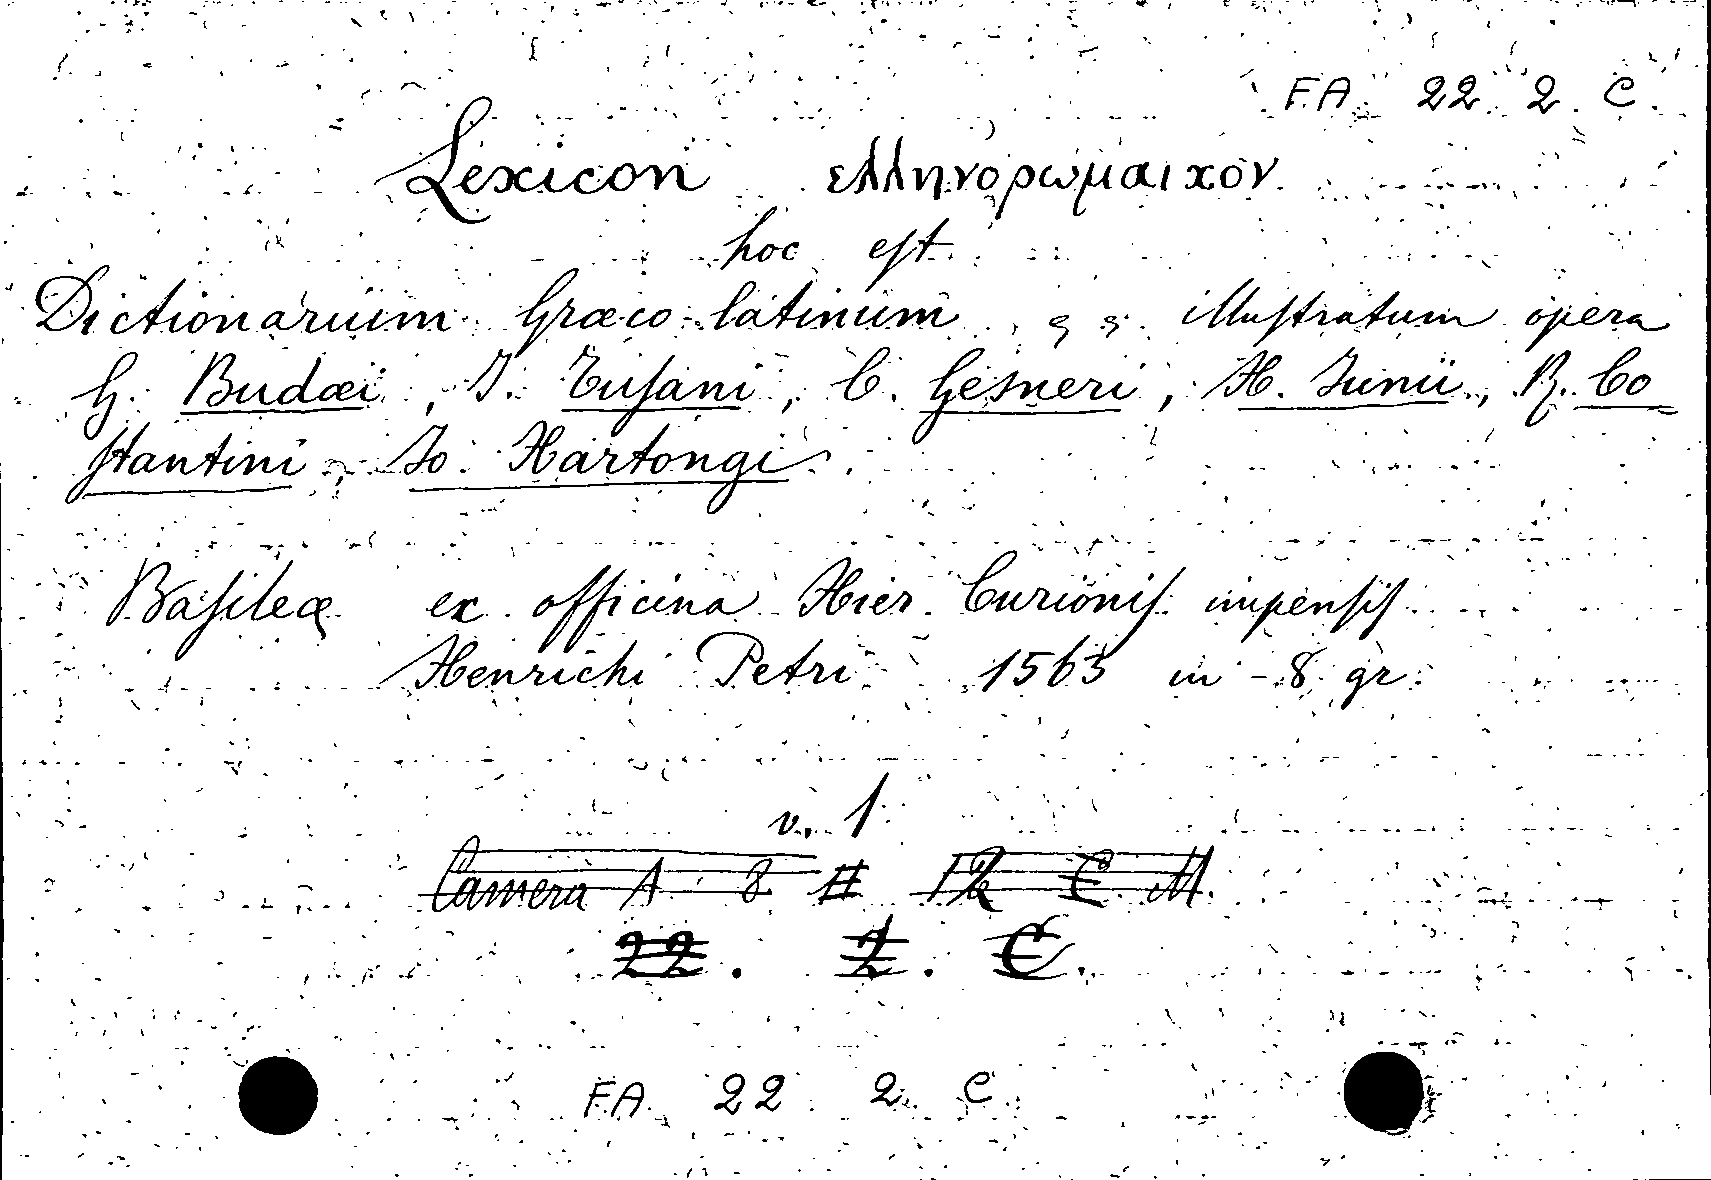 FA 22 2 C.
Lexicon ελληνορωμαιχον
hoc eſt
Dictionarium Græco-latinum illuſtratum opera
G. Budæi, J. Tuſani, C. Geſneri, H. Junii, R. Co
ſtantini, Jo. Hartongi.
Baſileæ ex officina Hier. Curioniſ impenſiſ
Henrichi Petri 1563 in-8 gr.
v. 1
Camera A 8 # 12 C. M.
22. 2. C.
FA 22 2 C